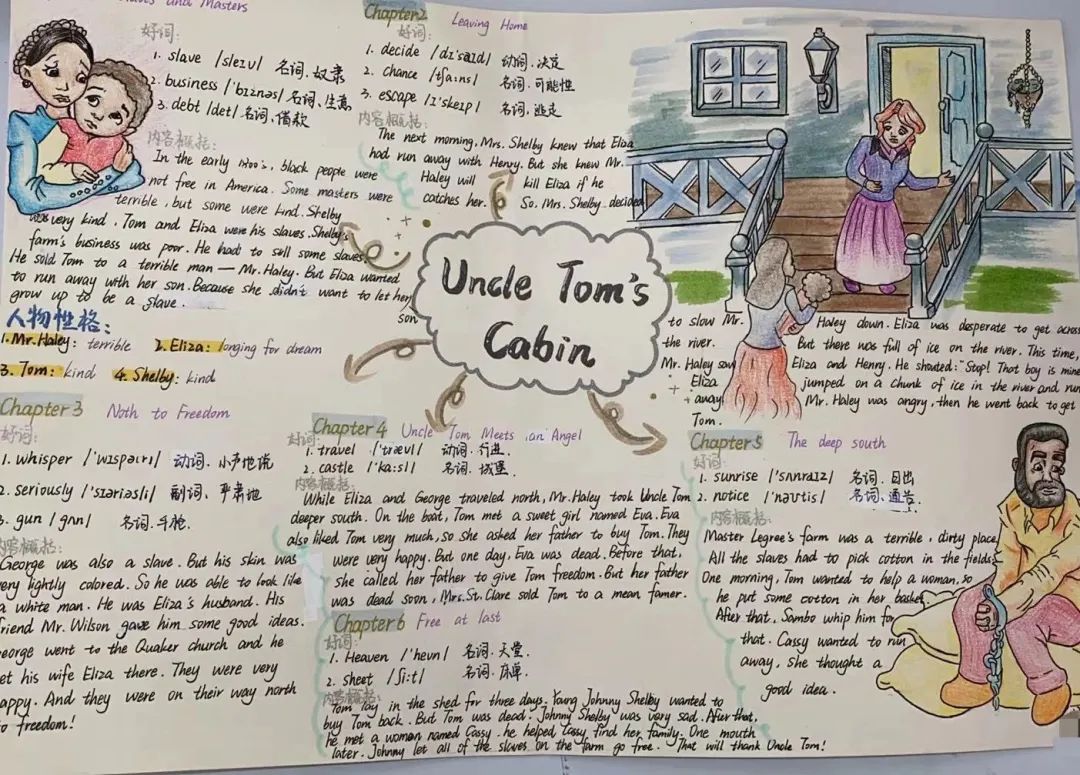 and Masters
好词:
1. slave /sleɪv/ 名词.奴隶
2. business /'bɪznəs/ 名词、生意
3. debt /det/ 名词、借款
内容概括:
In the early 1800's, black people were
not free in America. Some masters were
terrible, but some were kind. Shelby
was very kind. Tom and Eliza were his slaves. Shelby's
farm's business was poor. He had to sell some slaves.
He sold Tom to a terrible man — Mr. Haley. But Eliza wanted
to run away with her son. Because she didn't want to let her
son
grow up to be a slave.
人物性格:
1. Mr. Haley: terrible 2. Eliza: longing for dream
3. Tom: kind 4. Shelby: kind
Chapter2 Leaving Home
好词:
1. decide /dɪ'saɪd/ 动词.决定
2. chance /tʃɑ:ns/ 名词.可能性
3. escape /ɪ'skeɪp/ 名词、逃走
内容概括:
The next morning, Mrs. Shelby knew that Eliza
had run away with Henry. But she knew Mr.
Haley will kill Eliza if he
catches her. So. Mrs. Shelby decided
to slow Mr. Haley down. Eliza was desperate to get across
the river. But there was full of ice on the river. This time,
Mr. Haley saw Eliza and Henry. He shouted: "Stop! That boy is mine
Eliza jumped on a chunk of ice in the river and run
away. Mr. Haley was angry, then he went back to get
Tom.
Uncle Tom's
Cabin
Chapter3 Noth to Freedom
好词:
1. whisper /'wɪspə(r)/ 动词.小声地说
2. seriously /'sɪəriəsli/ 副词、严肃地
3. gun /gʌn/ 名词.手枪
内容概括:
George was also a slave. But his skin was
very lightly colored. So he was able to look like
a white man. He was Eliza's husband. His
friend Mr. Wilson gave him some good ideas.
George went to the Quaker church and he
met his wife Eliza there. They were very
happy. And they were on their way north
to freedom!
Chapter4 Uncle Tom Meets an Angel
好词:
1. travel /'trævl/ 动词.行进.
2. castle /'kɑ:sl/ 名词.城堡
内容概括:
While Eliza and George traveled north, Mr. Haley took Uncle Tom
deeper south. On the boat, Tom met a sweet girl named Eva. Eva
also liked Tom very much, so she asked her father to buy Tom. They
were very happy. But one day, Eva was dead. Before that,
she called her father to give Tom freedom. But her father
was dead soon, Mrs. St. Clare sold Tom to a mean famer.
Chapter5 The deep south
好词:
1. sunrise /'sʌnraɪz/ 名词.日出
2. notice /'nəʊtis/ 名词、通告
内容概括:
Master Legree's farm was a terrible, dirty place,
All the slaves had to pick cotton in the fields
One morning, Tom wanted to help a woman, so
he put some cotton in her basket.
After that, Sambo whip him for
that. Cassy wanted to run
away, she thought a
good idea.
Chapter6 Free at last
好词:
1. Heaven /'hevn/ 名词.天堂.
2. sheet /ʃi:t/ 名词.床单
内容概括:
Tom lay in the shed for three days. Young Johnny Shelby wanted to
buy Tom back. But Tom was dead. Johnny Shelby was very sad. After that,
he met a woman named Cassy. he helped Cassy find her family. One mouth
later. Johnny let all of the slaves on the farm go free. That will thank Uncle Tom!